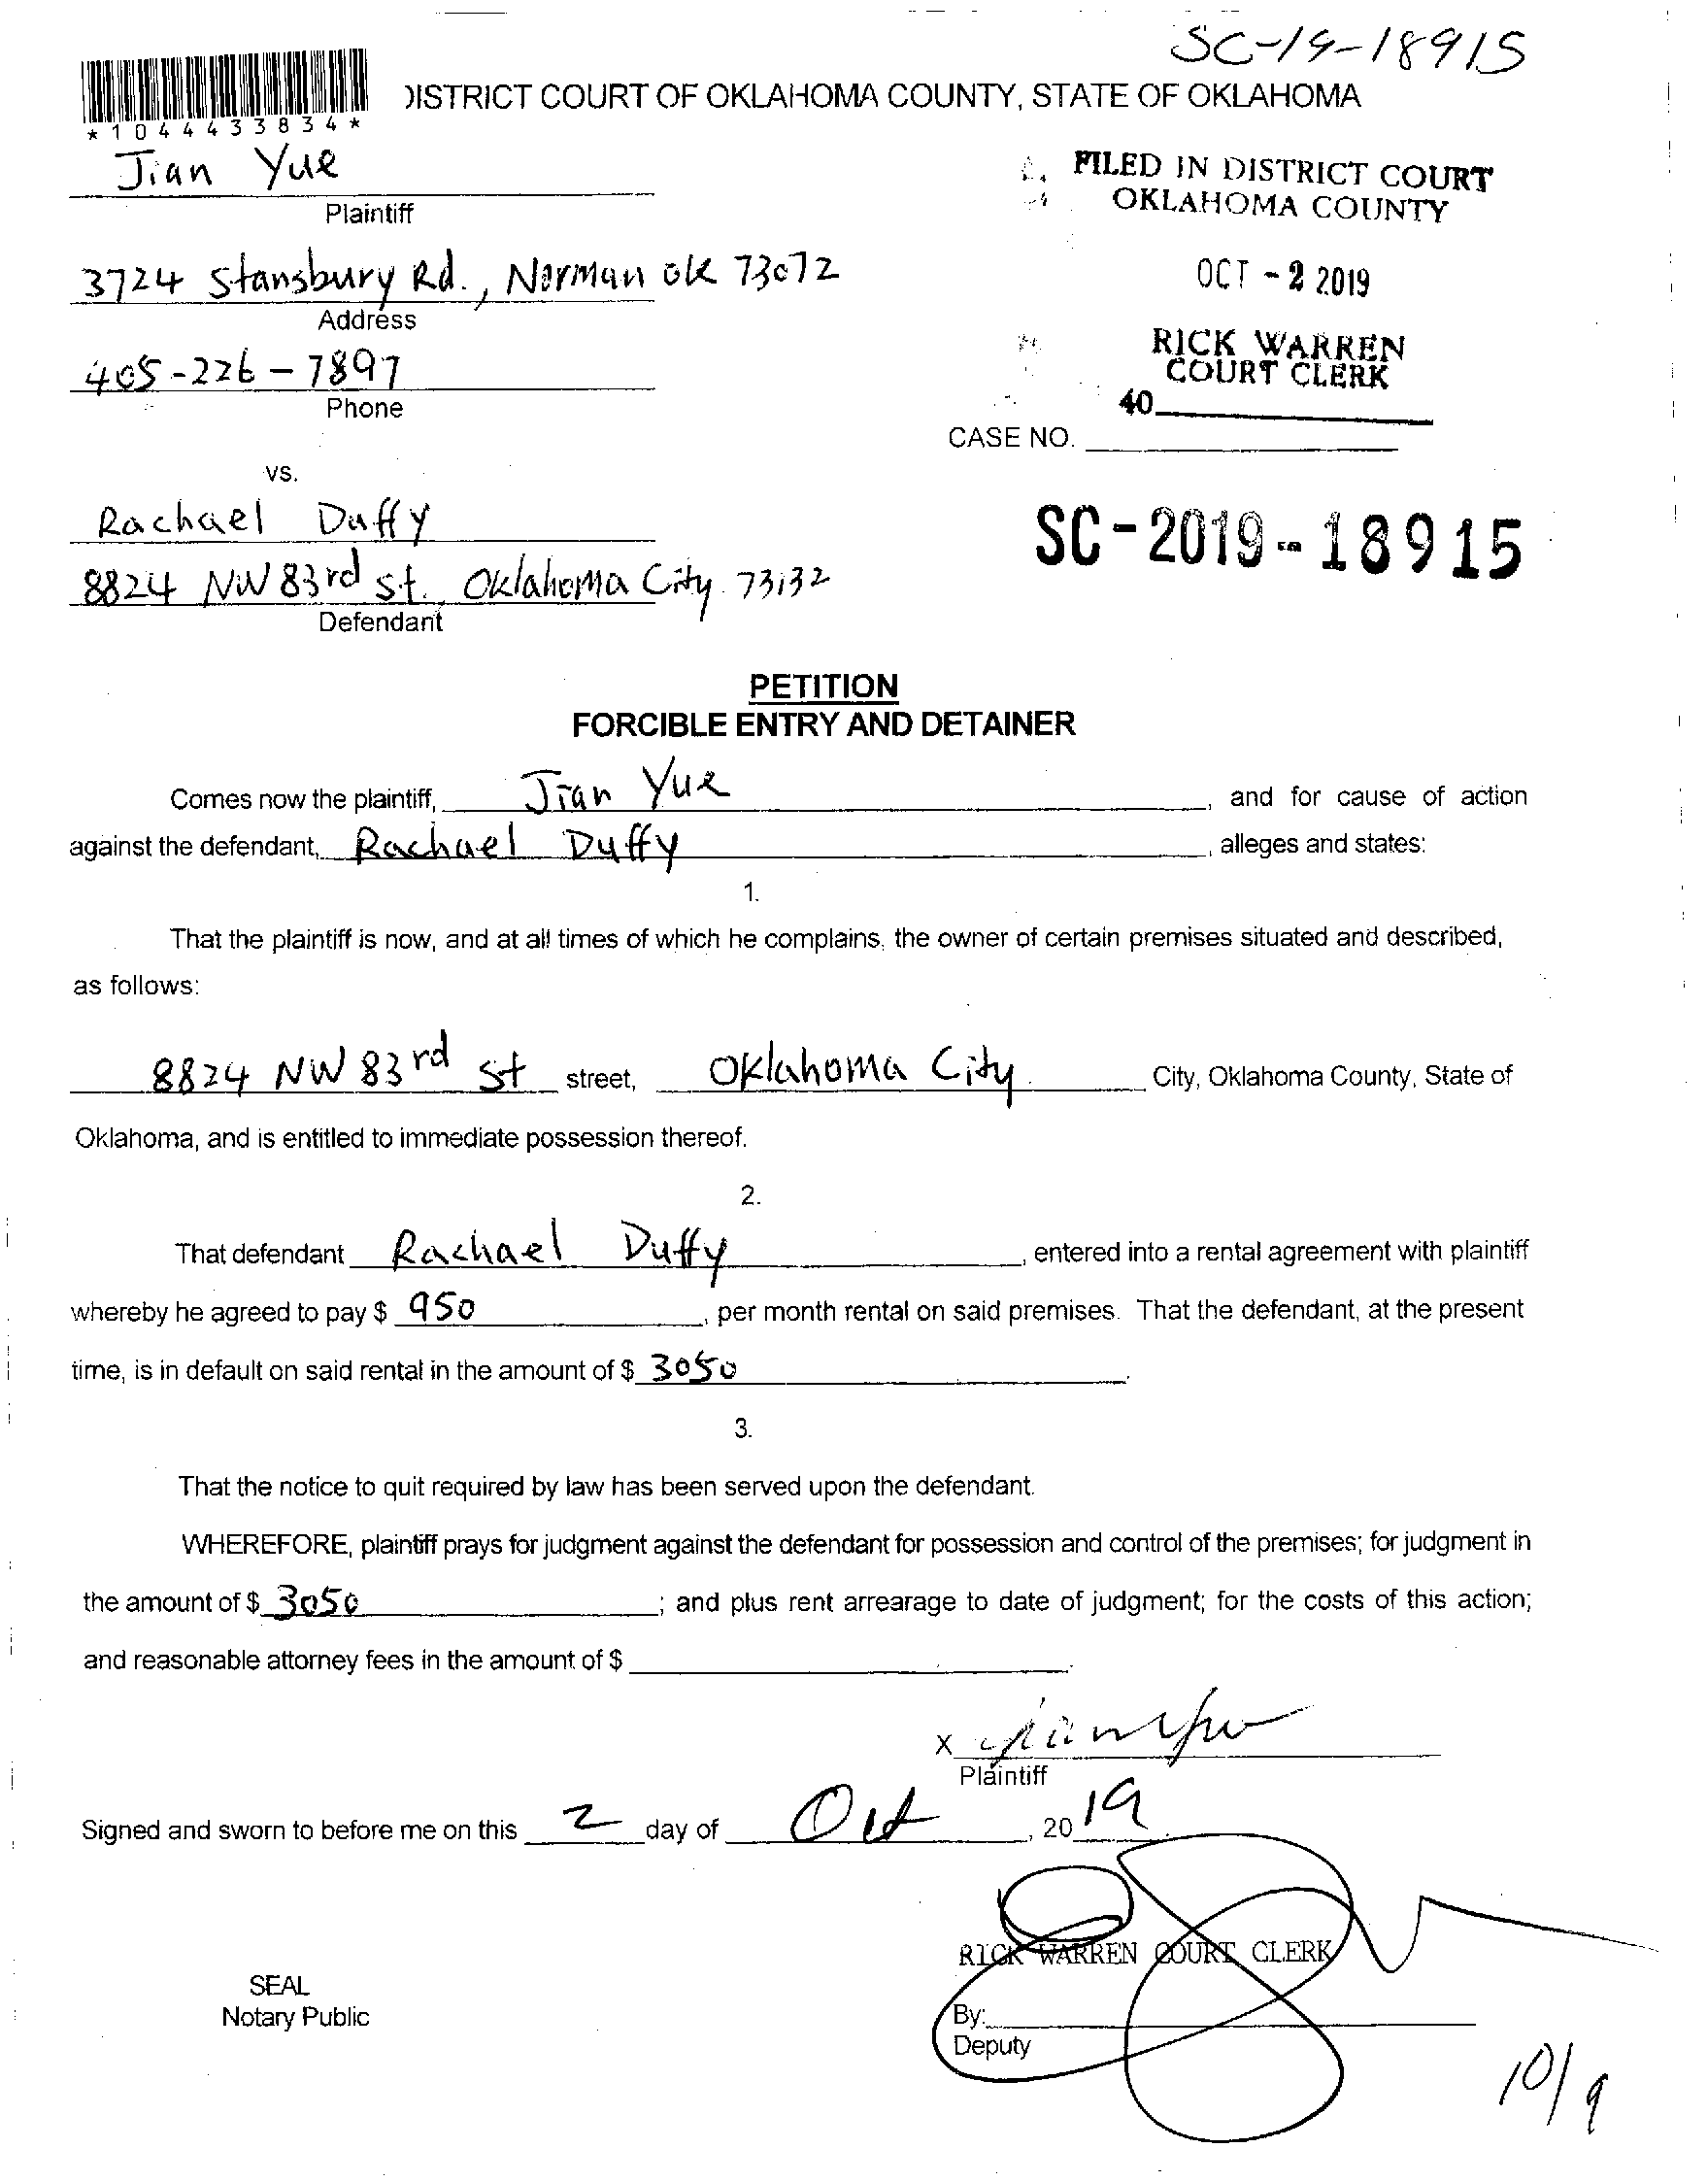 SC-19-18915
DISTRICT COURT OF OKLAHOMA COUNTY, STATE OF OKLAHOMA
*1044433834*
Jian Yue
Plaintiff
FILED IN DISTRICT COURT
OKLAHOMA COUNTY
3724 Stansbury Rd., Norman OK 73072
Address
OCT - 2 2019
405-226-7897
Phone
RICK WARREN
COURT CLERK
40
CASE NO.
vs.
Rachael Duffy
8824 NW 83rd st. Oklahoma City 73132
Defendant
SC-2019-18915
PETITION
FORCIBLE ENTRY AND DETAINER
Comes now the plaintiff, Jian Yue, and for cause of action
against the defendant, Rachael Duffy, alleges and states:
1.
That the plaintiff is now, and at all times of which he complains, the owner of certain premises situated and described,
as follows:
8824 NW 83rd St street, Oklahoma City City, Oklahoma County, State of
Oklahoma, and is entitled to immediate possession thereof.
2.
That defendant Rachael Duffy, entered into a rental agreement with plaintiff
whereby he agreed to pay $ 950, per month rental on said premises. That the defendant, at the present
time, is in default on said rental in the amount of $ 3050.
3.
That the notice to quit required by law has been served upon the defendant.
WHEREFORE, plaintiff prays for judgment against the defendant for possession and control of the premises; for judgment in
the amount of $ 3050; and plus rent arrearage to date of judgment; for the costs of this action;
and reasonable attorney fees in the amount of $.
X
Plaintiff
Signed and sworn to before me on this 2 day of Oct, 2019
RICK WARREN COURT CLERK
SEAL
Notary Public
By:
Deputy
10/9